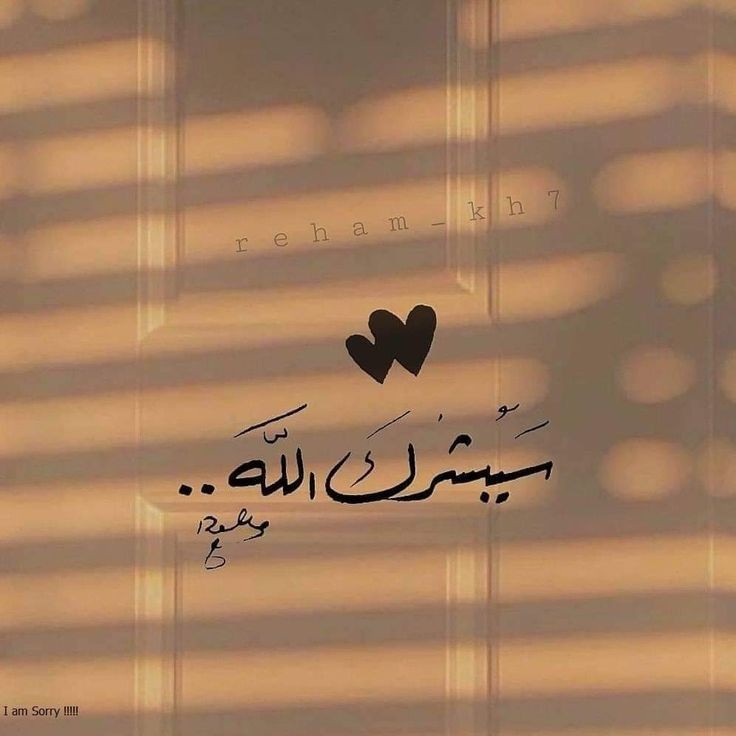 r e h a m _ k h 7
سَيُبشرك اللَّه ..
I am Sorry !!!!!